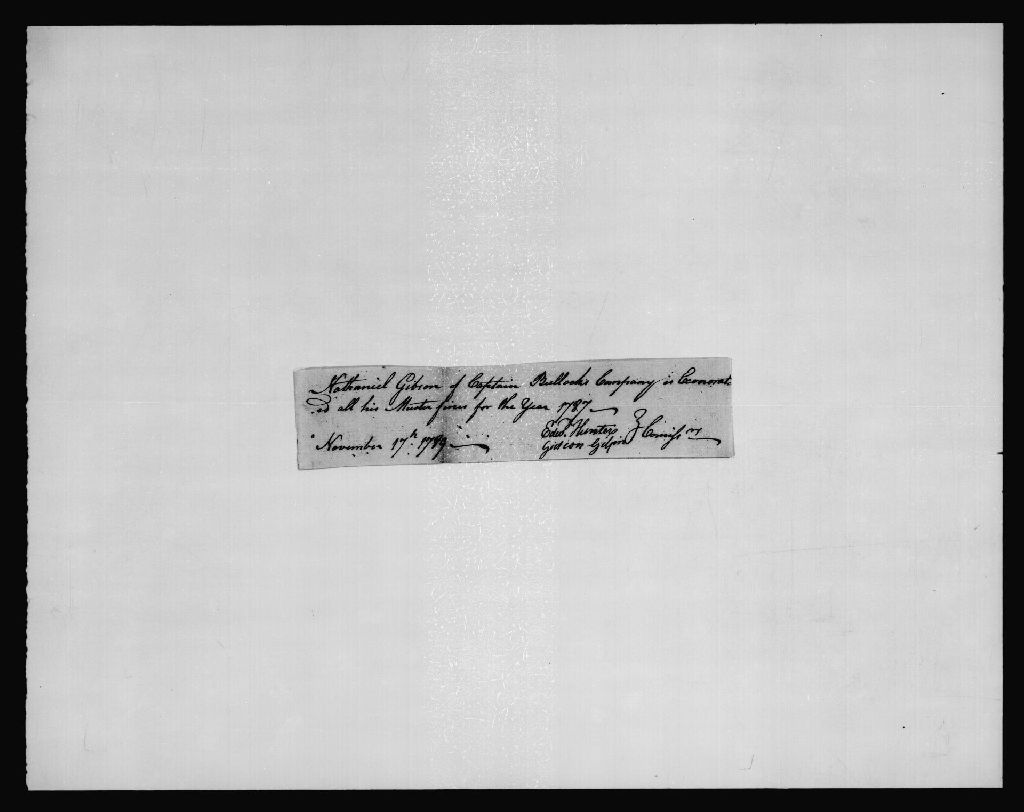 Nathaniel Gibson of Captain Bullock's Company is Exonorat
ed all his Muster fines for the Year 1787
November 17th 1789
Edwd. Hunter
Gideon Gilpin } Comissrs